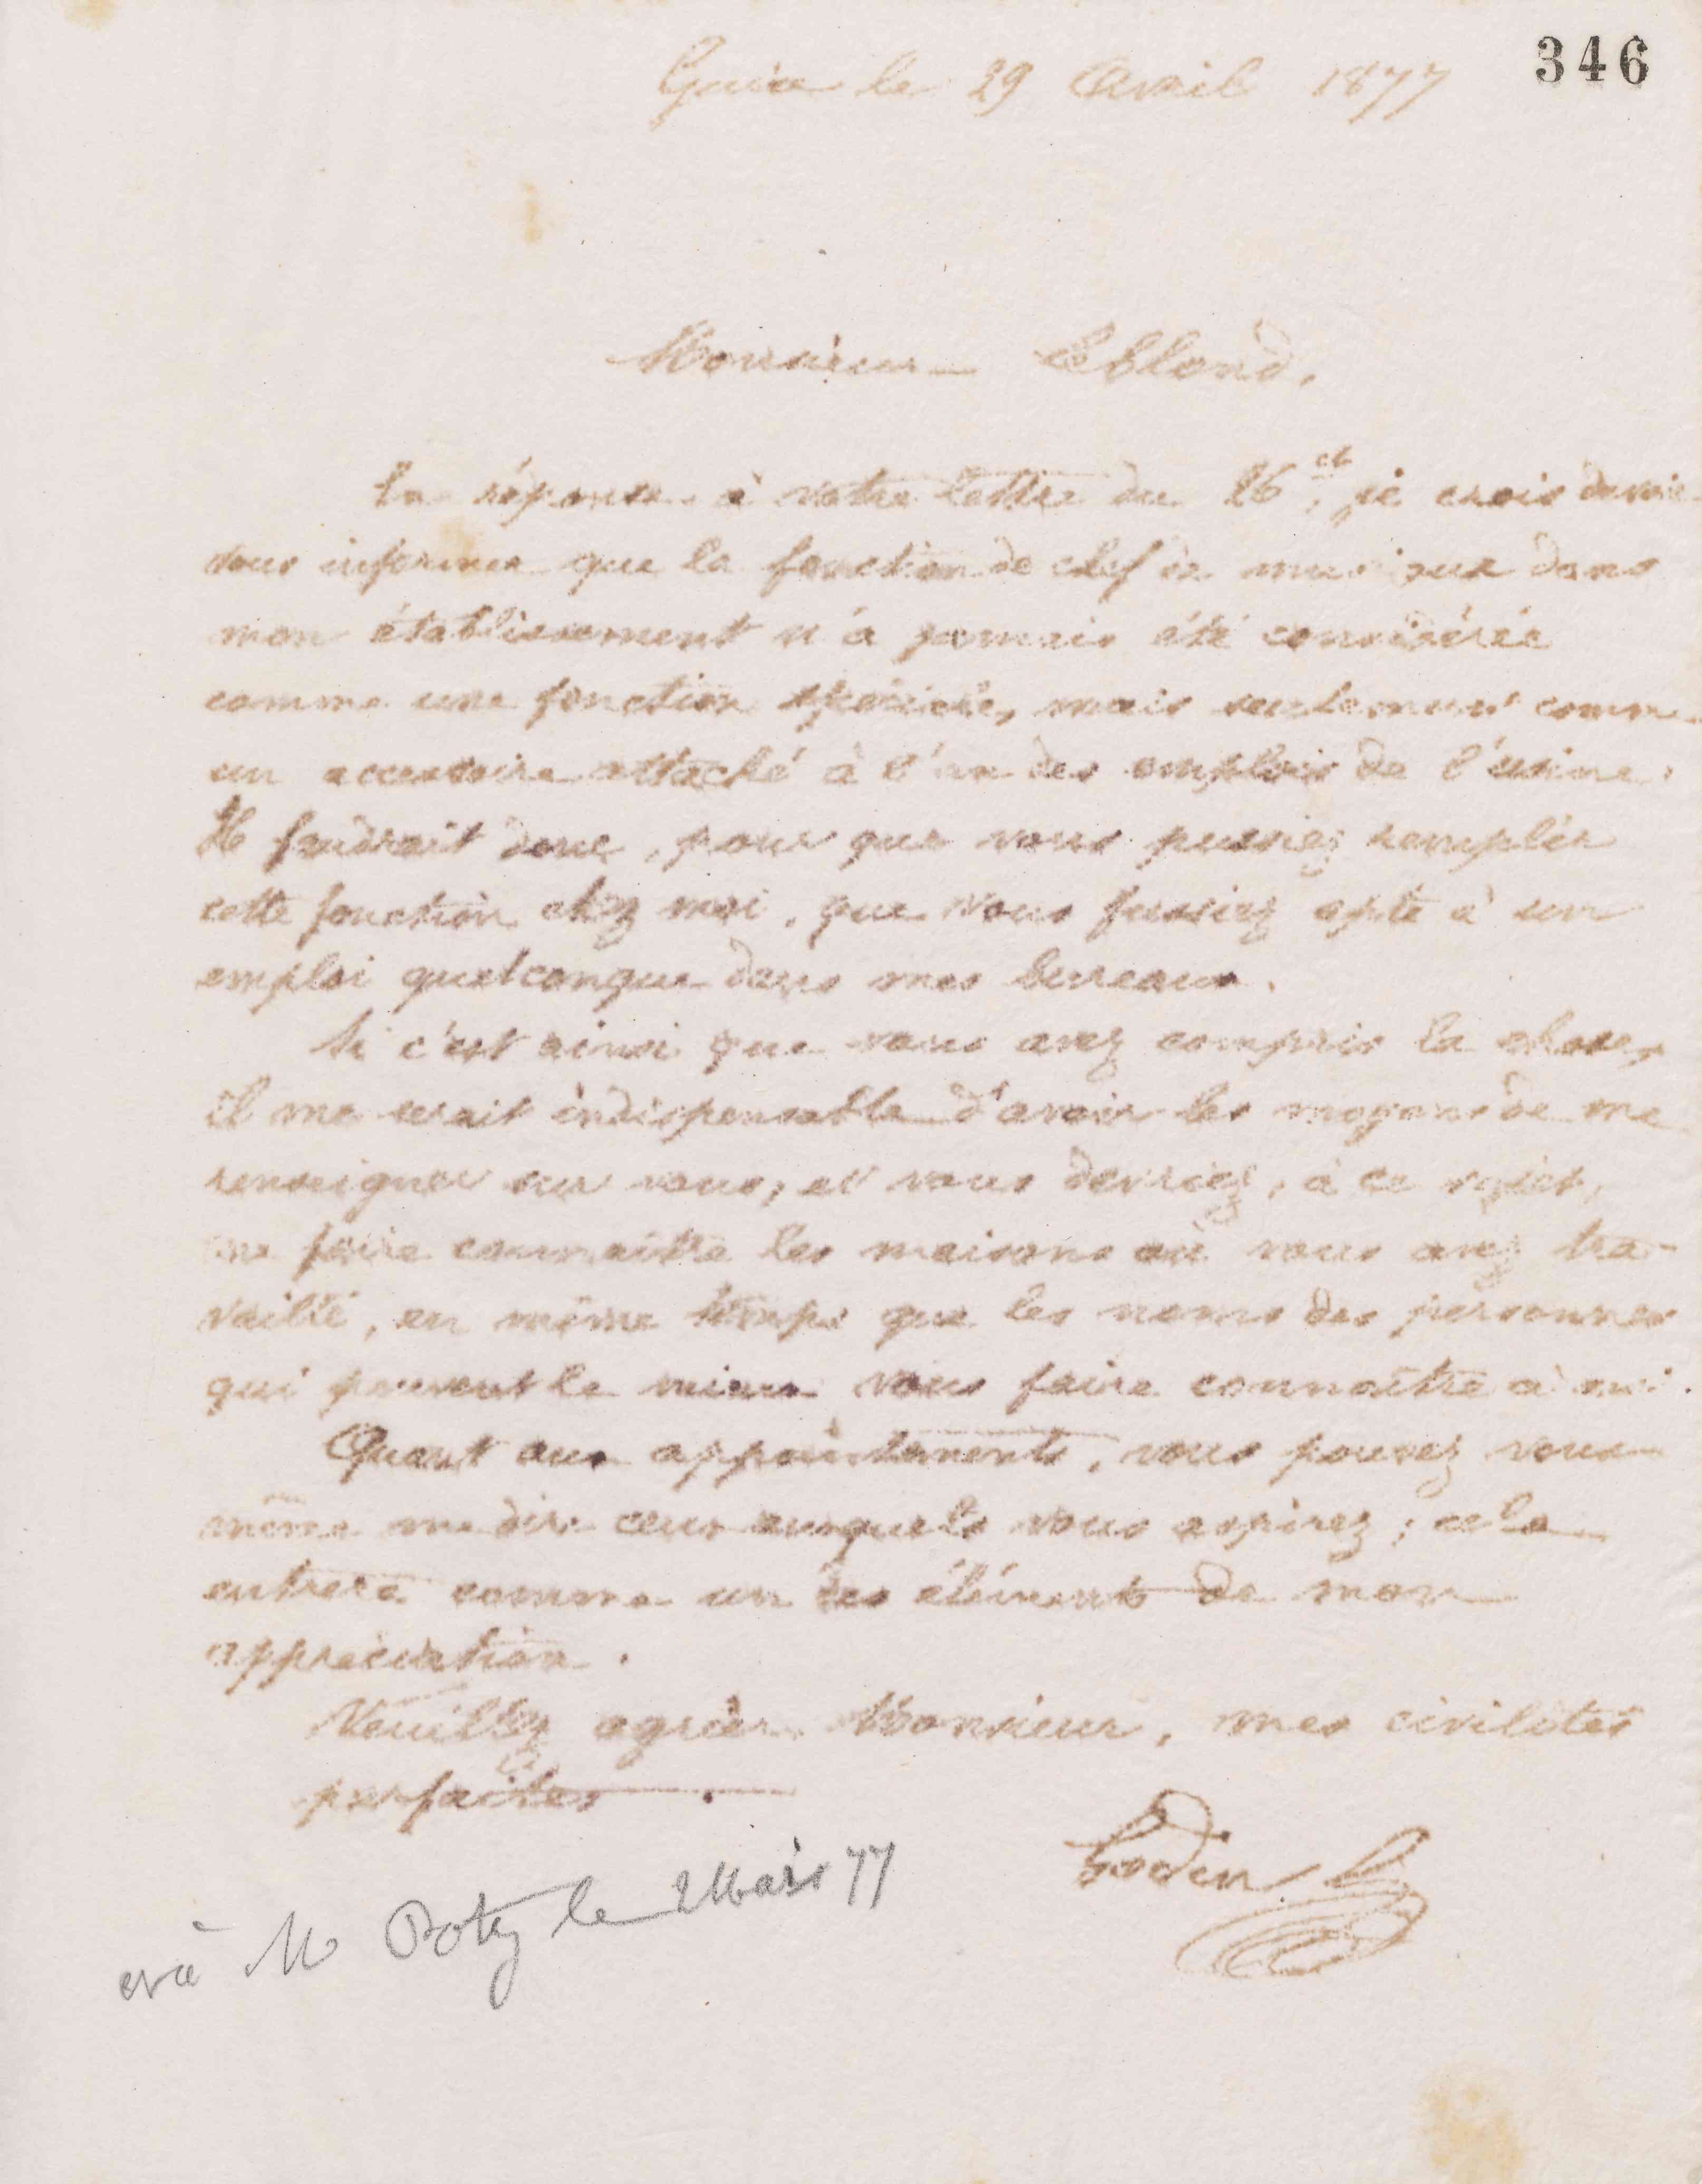 346
Guise le 29 Avril 1877
Monsieur Leblond,
En réponse à votre lettre du 26 ct, je crois devoir
vous informer que la fonction de chef de musique dans
mon établissement n'a jamais été considérée
comme une fonction spéciale, mais seulement comme
un accessoire attaché à l'un des emplois de l'usine.
Il faudrait donc, pour que vous pussiez remplir
cette fonction chez moi, que vous fussiez apte à un
emploi quelconque dans mes bureaux.
Si c'est ainsi que vous avez compris la chose,
il me serait indispensable d'avoir les moyens de me
renseigner sur vous, et vous devriez, à ce sujet,
me faire connaître les maisons où vous avez tra-
vaillé, en même temps que les noms des personnes
qui peuvent le mieux vous faire connaître à moi.
Quant aux appointements, vous pouvez vous
même me dire ceux auxquels vous aspirez ; cela
entrera comme un des éléments de mon
appréciation.
Veuillez agréer Monsieur, mes civilités
parfaites.
Godin
à M Potez le 2 Mars 77